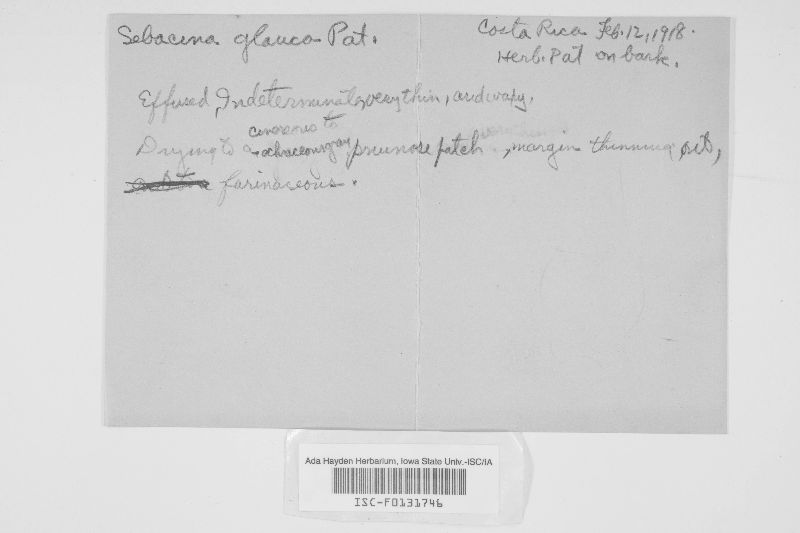 Sebacina glauca Pat.
Costa Rica Feb. 12, 1918.
Herb. Pat on bark.
Effused, Indeterminate, very thin, and waxy,
cinereous to
Drying to a ochraceous gray pruinose patch, margin thinning out,
farinaceous.
Ada Hayden Herbarium, Iowa State Univ.-ISC/IA
ISC-F0131746